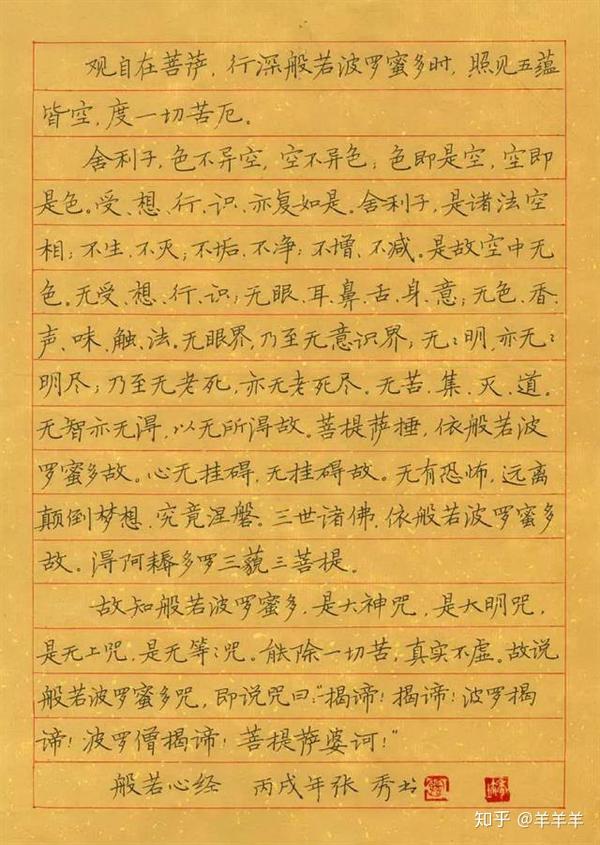 观自在菩萨，行深般若波罗蜜多时，照见五蕴
皆空，度一切苦厄。
舍利子，色不异空，空不异色；色即是空，空即
是色。受、想、行、识、亦复如是。舍利子，是诸法空
相；不生、不灭；不垢、不净；不增、不减。是故空中无
色。无受、想、行、识；无眼、耳、鼻、舌、身、意；无色、香、
声、味、触、法。无眼界，乃至无意识界；无〻明，亦无〻
明尽；乃至无老死，亦无老死尽。无苦、集、灭、道。
无智亦无得，以无所得故。菩提萨埵，依般若波
罗蜜多故。心无挂碍，无挂碍故。无有恐怖，远离
颠倒梦想、究竟涅磐。三世诸佛、依般若波罗蜜多
故。得阿耨多罗三藐三菩提。
故知般若波罗蜜多，是大神咒，是大明咒，
是无上咒，是无等〻咒。能除一切苦，真实不虚。故说
般若波罗蜜多咒，即说咒曰：“揭谛！揭谛！波罗揭
谛！波罗僧揭谛！菩提萨婆诃！”
般若心经 丙戌年张秀书
知乎 @羊羊羊